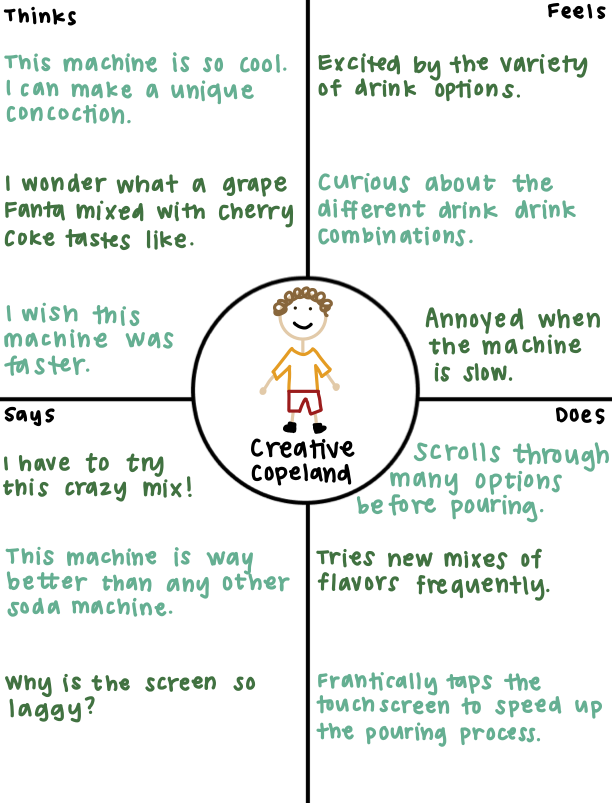 Thinks
This machine is so cool.
I can make a unique
concoction.
I wonder what a grape
Fanta mixed with Cherry
Coke tastes like.
I wish this
machine was
faster.
Feels
Excited by the variety
of drink options.
Curious about the
different drink drink
combinations.
Annoyed when
the machine
is slow.
Creative
Copeland
Says
I have to try
this crazy mix!
This machine is way
better than any other
soda machine.
Why is the screen so
laggy?
Does
Scrolls through
many options
before pouring.
Tries new mixes of
flavors frequently.
Frantically taps the
touchscreen to speed up
the pouring process.